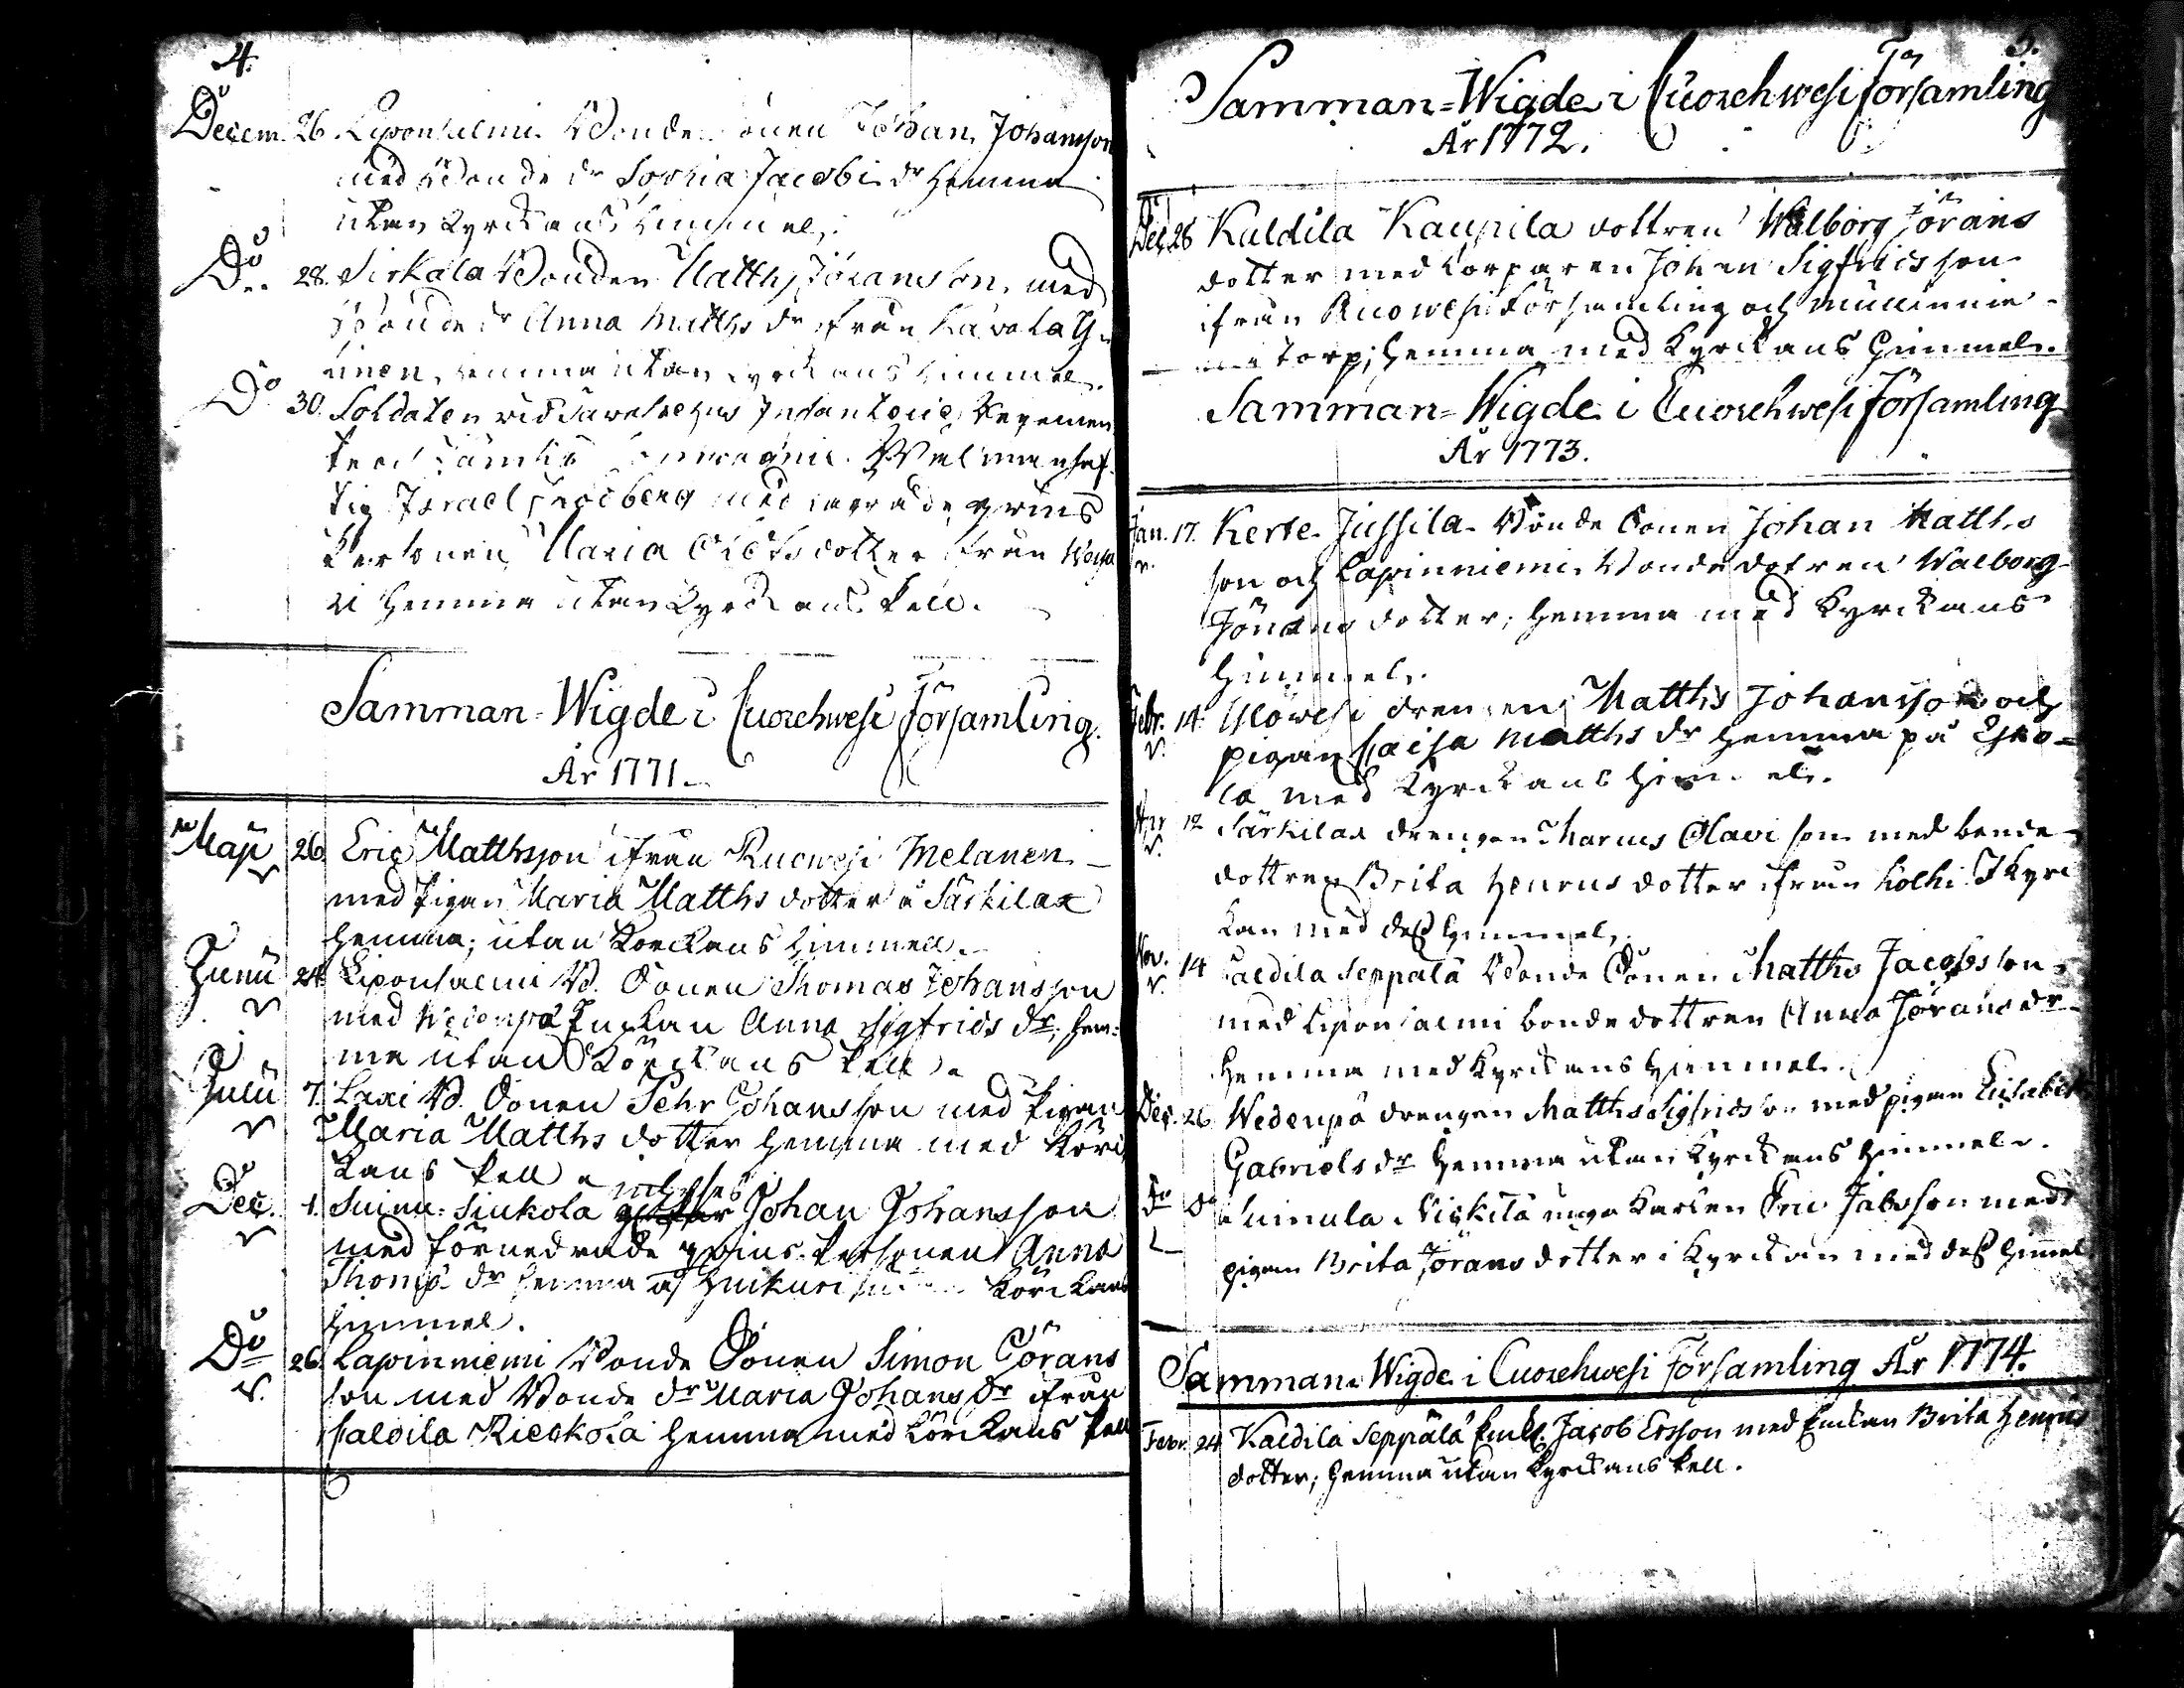 4.
Decem. 26. Liponsalmi Bonde Sonen Johan Johansson
med Bonde dr Sophia Jacobs dr hemma
utan Kyrckans himmel.
Do 28. Sirkala Bonden Matths Jöransson, med
Bonde dr Anna Matths dr ifrån
hemma utan Kyrckans himmel.
Do 30. Soldaten vid Infanterie Regemen
Compagnie. Wälmanhaf-
tig Israel med
Personen Maria dotter ifrån
hemma utan Kyrckans Pell.
Samman-Wigde i Cuorehwesi Församling.
År 1771.
Maji 26. Eric Matthsson ifrån Ruowesi Melanen
med Pigan Maria Matths dotter å Särkilax
hemma; utan Körckans himmell.
Junii 24. Liponsalmi B. Sonen Thomas Johansson
med Wedenpä Enckan Anna Sigfrids dr, hem-
ma utan Körckans Pell.
Julii 7. Laxi B. Sonen Pehr Johansson med Pigan
Maria Matths dotter hemma med Körc
kans Pell
Dec. 1. Suinu-Siukola inhyses Johan Johansson
med förnedrade qwins-Personen Anna
Thomæ dr hemma Körckans
himmel.
Do 26. Lapinniemi Bonde Sonen Simon Görans
son med Bonde dr Maria Johans dr ifrån
Caldila Rieskola hemma med Körckans Pell
5.
Samman-Wigde i Cuorehwesi Församling
År 1772.
Dec. 26 Kaldila Kaupila dottren Walborg Jörans
dotter med Torparen Johan Sigfridsson
ifrån Ruowesi Församling och
Torp; hemma med Kyrckans Himmel.
Samman-Wigde i Cuorehwesi Församling
År 1773.
Jan. 17. Kerte-Jussila Bonde Sonen Johan Matths
son och Lapinniemi Bonde dotren Walborg
Jörans dotter; hemma med Kyrckans
himmel.
Febr. 14. drengen Matths Johansson och
pigan Caisa Matths dr hemma på
la med Kyrckans himmel.
12 Särkilax drengen Marcus Olavi son med bonde
dottren Brita Henrics dotter ifrån Kolhi I Kyrc
kan med dess himmel.
Nov. 14 Caldila Seppälä Bonde Sonen Matths Jacobsson
med Liponsalmi bonde dottren Anna Jörans dr
hemma med Kyrckans himmel.
Dec. 26 Wedenpä drengen Matths Sigfridsson med pigan Elisabeth
Gabriels dr hemma utan Kyrckans himmel.
Do Do unga Karlen Eric Jabsson med
pigan Brita Jörans dotter i Kyrckan med dess himmel
Samman-Wigde i Cuorehwesi Församling År 1774.
Febr. 24 Kaldila Seppälä Enkl. Jacob Ersson med Enckan Brita Henrics
dotter; hemma utan Kyrckans Pell.